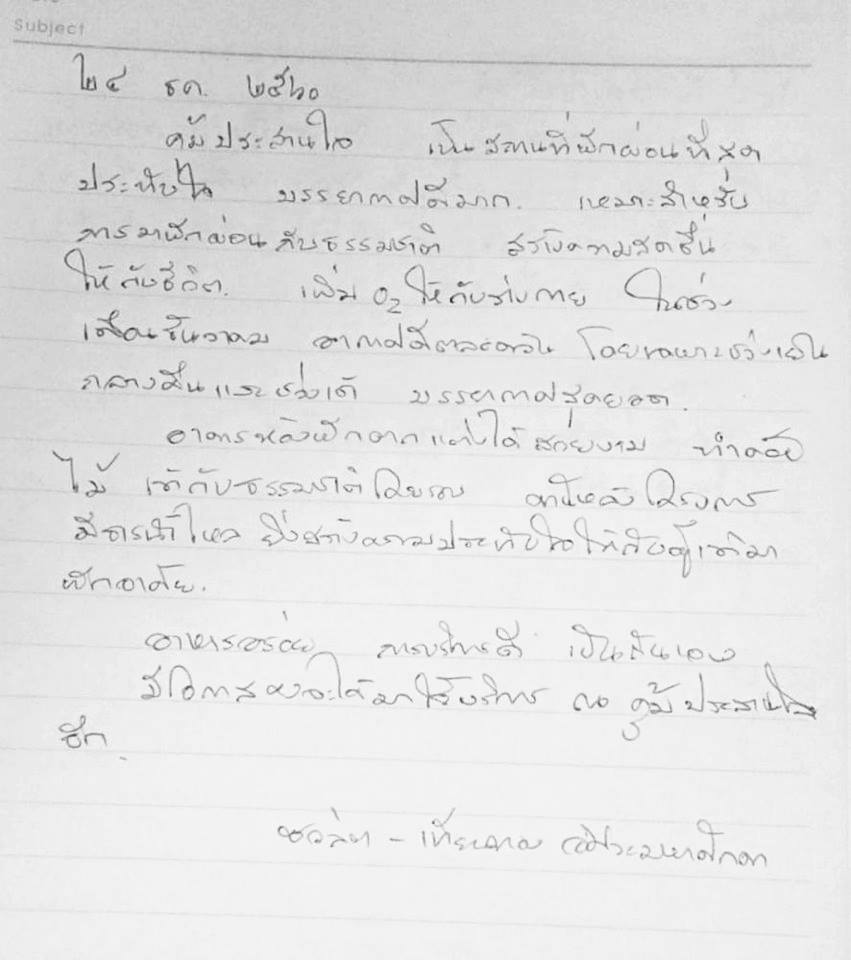 Subject
๒๔ ธค. ๒๕๖๐
คุ้มประสานใจ เป็นสถานที่พักผ่อนที่สุด
ประทับใจ บรรยากาศดีมาก. เหมาะสำหรับ
การมาพักผ่อนกับธรรมชาติ สร้างความสดชื่น
ให้กับชีวิต. เพิ่ม O₂ ให้กับร่างกาย ในช่วง
เดือนธันวาคม อากาศดีตลอดวัน โดยเฉพาะช่วงเย็น
กลางคืนและช่วงเช้า บรรยากาศสุดยอด.
อาคารหลังพักตกแต่งได้สวยงาม ทำด้วย
ไม้ เข้ากับธรรมชาติโดยรอบ ด้านหลังโครงการ
มีธารน้ำไหล ยิ่งสร้างความประทับใจให้กับผู้เข้ามา
พักอาศัย.
อาหารอร่อย การบริการดี เป็นกันเอง
มีโอกาสคงจะได้มาใช้บริการ ณ คุ้มประสานใจ
อีก.
ชวลิต -